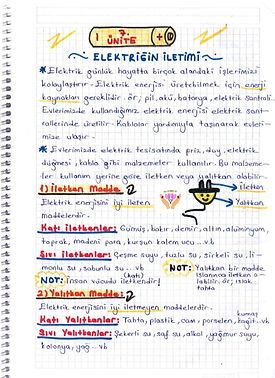 7.
ÜNİTE
ELEKTRİĞİN İLETİMİ
* Elektrik günlük hayatta birçok alandaki işlerimizi
kolaylaştırır. Elektrik enerjisi üretebilmek için enerji
kaynakları gereklidir. ör/ pil, akü, batarya, elektrik santrali.
Evlerimizde kullandığımız elektrik enerjisi elektrik sant-
rallerinde üretilir. Kablolar yardımıyla taşınarak evleri-
mize ulaşır.
* Evlerimizde elektrik tesisatında priz, duy, elektrik
düğmesi, kablo gibi malzemeler kullanılır. Bu malzeme-
ler kullanım yerine göre iletken veya yalıtkan olabilir.
1) İletken Madde:
iletken
Yalıtkan
Elektrik enerjisini iyi ileten
maddelerdir.
Katı İletkenler: Gümüş, bakır, demir, altın, alüminyum,
toprak, madeni para, kurşun kalem ucu ...vb
Sıvı İletkenler: Çeşme suyu, tuzlu su, sirkeli su, li-
monlu su, sabunlu su ... vb
(katı)
NOT: İnsan vücudu iletkendir!
NOT: Yalıtkan bir madde
ıslanınca iletken o-
labilir. ör, ıslak
tahta
2) Yalıtkan Madde:
Elektrik enerjisini iyi iletmeyen maddelerdir.
kumaş
Katı Yalıtkanlar: Tahta, plastik, cam, porselen, kağıt ..vb
Sıvı Yalıtkanlar: Şekerli su, saf su, alkol, yağmur suyu,
kolonya, yağ ... vb